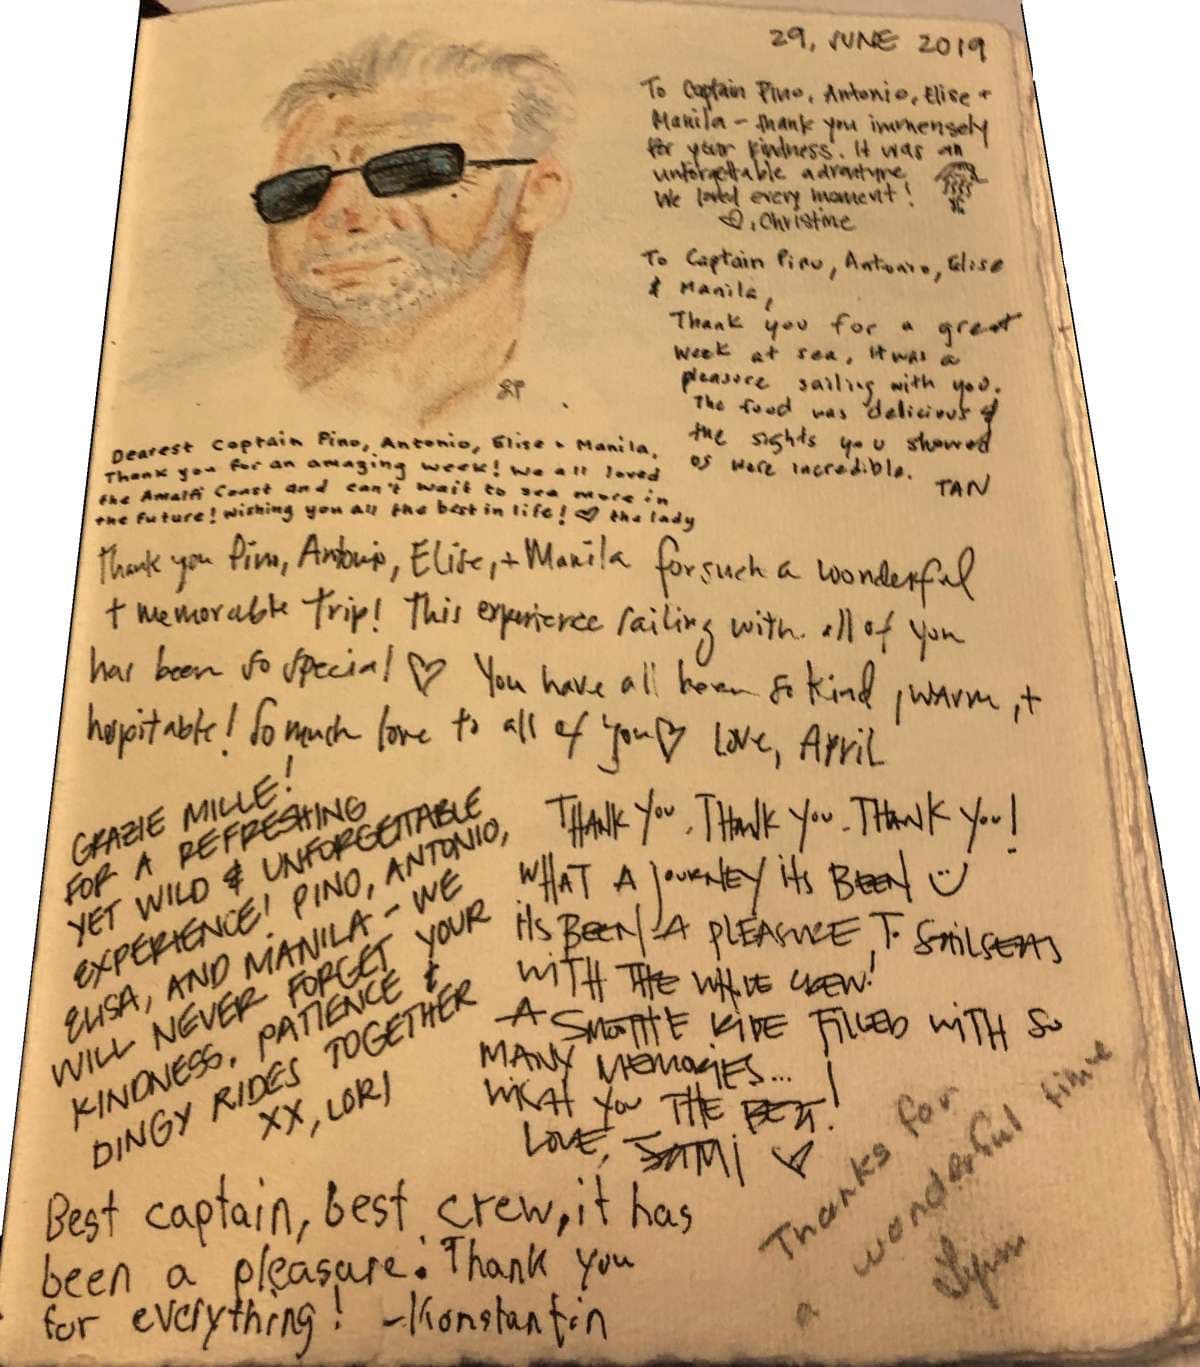 29, JUNE 2019
To Captain Pino, Antonio, Elise +
Manila - thank you immensely
for your kindness. It was an
unforgettable adventure
We loved every moment!
♡, Christine
To Captain Pino, Antonio, Elise
& Manila,
Thank you for a great
week at sea, It was a
pleasure sailing with you.
The food was delicious &
the sights you showed
us were incredible.
TAN
Dearest Captain Pino, Antonio, Elise + Manila,
Thank you for an amazing week! We all loved
the Amalfi Coast and can't wait to see more in
the future! Wishing you all the best in life! ♡ the lady
Thank you Pino, Antonio, Elise, + Manila for such a wonderful
+ memorable trip! This experience sailing with all of you
has been so special ♡ You have all been so kind, warm, +
hospitable! So much love to all of you ♡ Love, April
GRAZIE MILLE!
FOR A REFRESHING
YET WILD & UNFORGETTABLE
EXPERIENCE! PINO, ANTONIO,
ELISA, AND MANILA - WE
WILL NEVER FORGET YOUR
KINDNESS, PATIENCE &
DINGY RIDES TOGETHER
XX, LORI
THANK YOU. THANK YOU. THANK YOU!
WHAT A JOURNEY ITS BEEN
ITS BEEN A PLEASURE TO SAIL SEAS
WITH THE WHOLE CREW!
A SMOOTHE RIDE FILLED WITH SO
MANY MEMORIES...
WISH YOU THE BEST!
LOVE, SAMI ♡
Best captain, best crew, it has
been a pleasure. Thank you
for everything! -Konstantin
Thanks for
a wonderful time